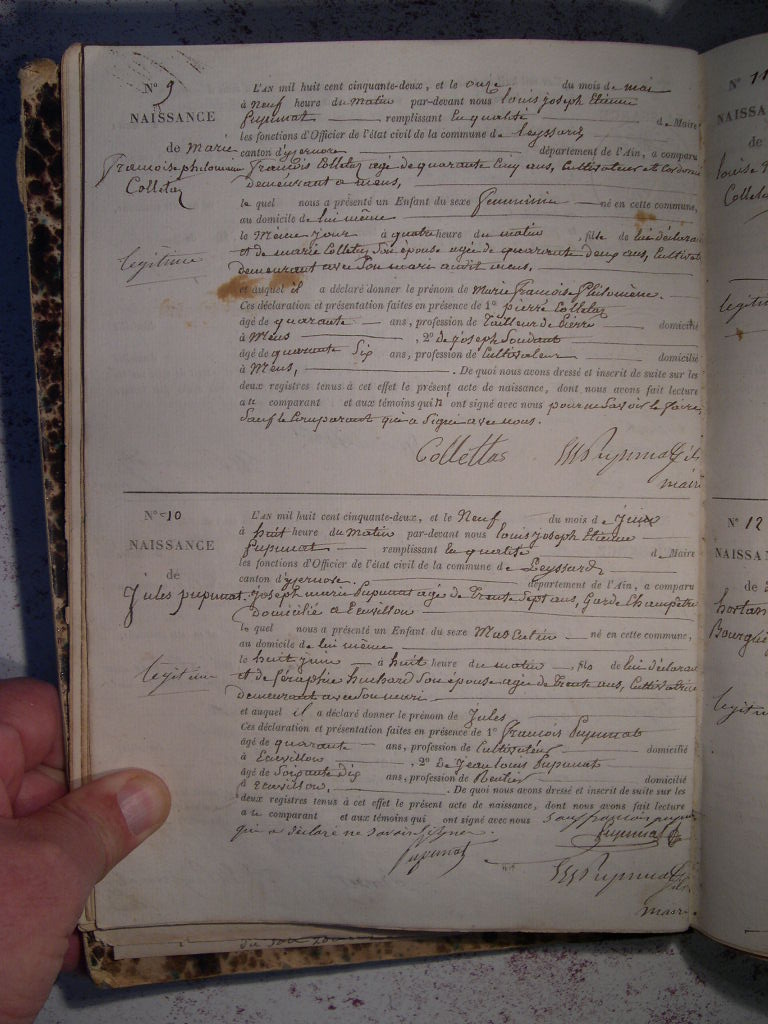 N° 9
NAISSANCE
de Marie
françoise philomène
Colletaz
légitime
L'AN mil huit cent cinquante-deux, et le onze du mois de mai
à neuf heure du matin par-devant nous louis joseph Etienne
Pupunat remplissant la qualité de Maire
les fonctions d'Officier de l'état civil de la commune de leyssard
canton d'yzernore département de l'Ain, a comparu
françois Colletaz agé de quarante cinq ans, Cultivateur et Cordonni
demeurant a mens,
le quel nous a présenté un Enfant du sexe feminin né en cette commune,
au domicile de lui même
le Même jour à quatre heure du matin, fille de lui déclarant
et de marie Colletaz son épouse agée de quarante deux ans, Cultivat
demeurant avec son mari audit mens,
et auquel il a déclaré donner le prénom de Marie françoise Philomène.
Ces déclaration et présentation faites en présence de 1° pierre Colletaz
âgé de quarante ans, profession de Tailleur de Pierre domicilié
à Mens, 2° de joseph Soudant
âgé de quarante six ans, profession de Cultivateur domicilié
à Mens, . De quoi nous avons dressé et inscrit de suite sur les
deux registres tenus à cet effet le présent acte de naissance, dont nous avons fait lecture
au comparant et aux témoins qui n'ont signé avec nous pour ne savoir le faire
sauf le Comparant qui a signé avec nous.
Collettas
Pupunat fils
maire
N° 10
NAISSANCE
de
Jules pupunat.
légitime
L'AN mil huit cent cinquante-deux, et le Neuf du mois de juin
à huit heure du matin par-devant nous louis joseph Etienne
Pupunat remplissant la qualité de Maire
les fonctions d'Officier de l'état civil de la commune de Leyssard
canton d'yzernore. département de l'Ain, a comparu
joseph marie Pupunat agé de Trente sept ans, Garde Champêtre
domicilié a Ecuvillon
le quel nous a présenté un Enfant du sexe Masculin né en cette commune,
au domicile de lui même
le huit juin à huit heure du matin, fils de lui déclarant
et de Séraphie huchard son épouse agée de Trente ans, Cultivatrice
demeurant avec son mari
et auquel il a déclaré donner le prénom de Jules
Ces déclaration et présentation faites en présence de 1° François Pupunat
âgé de quarante ans, profession de Cultivateur domicilié
à Ecuvillon, 2° de Jean louis Pupunat
âgé de Soixante Dix ans, profession de Rentier domicilié
à Ecuvillon, . De quoi nous avons dressé et inscrit de suite sur les
deux registres tenus à cet effet le présent acte de naissance, dont nous avons fait lecture
au comparant et aux témoins qui ont signé avec nous sauf françois pupunat
qui a déclaré ne savoir signer.
Pupunat
pupunat
Pupunat fils
maire
N° 11
NAISSA
de
louise
Colleta
legitim
N° 12
NAISSAN
de
hostan
Bourg
legitim